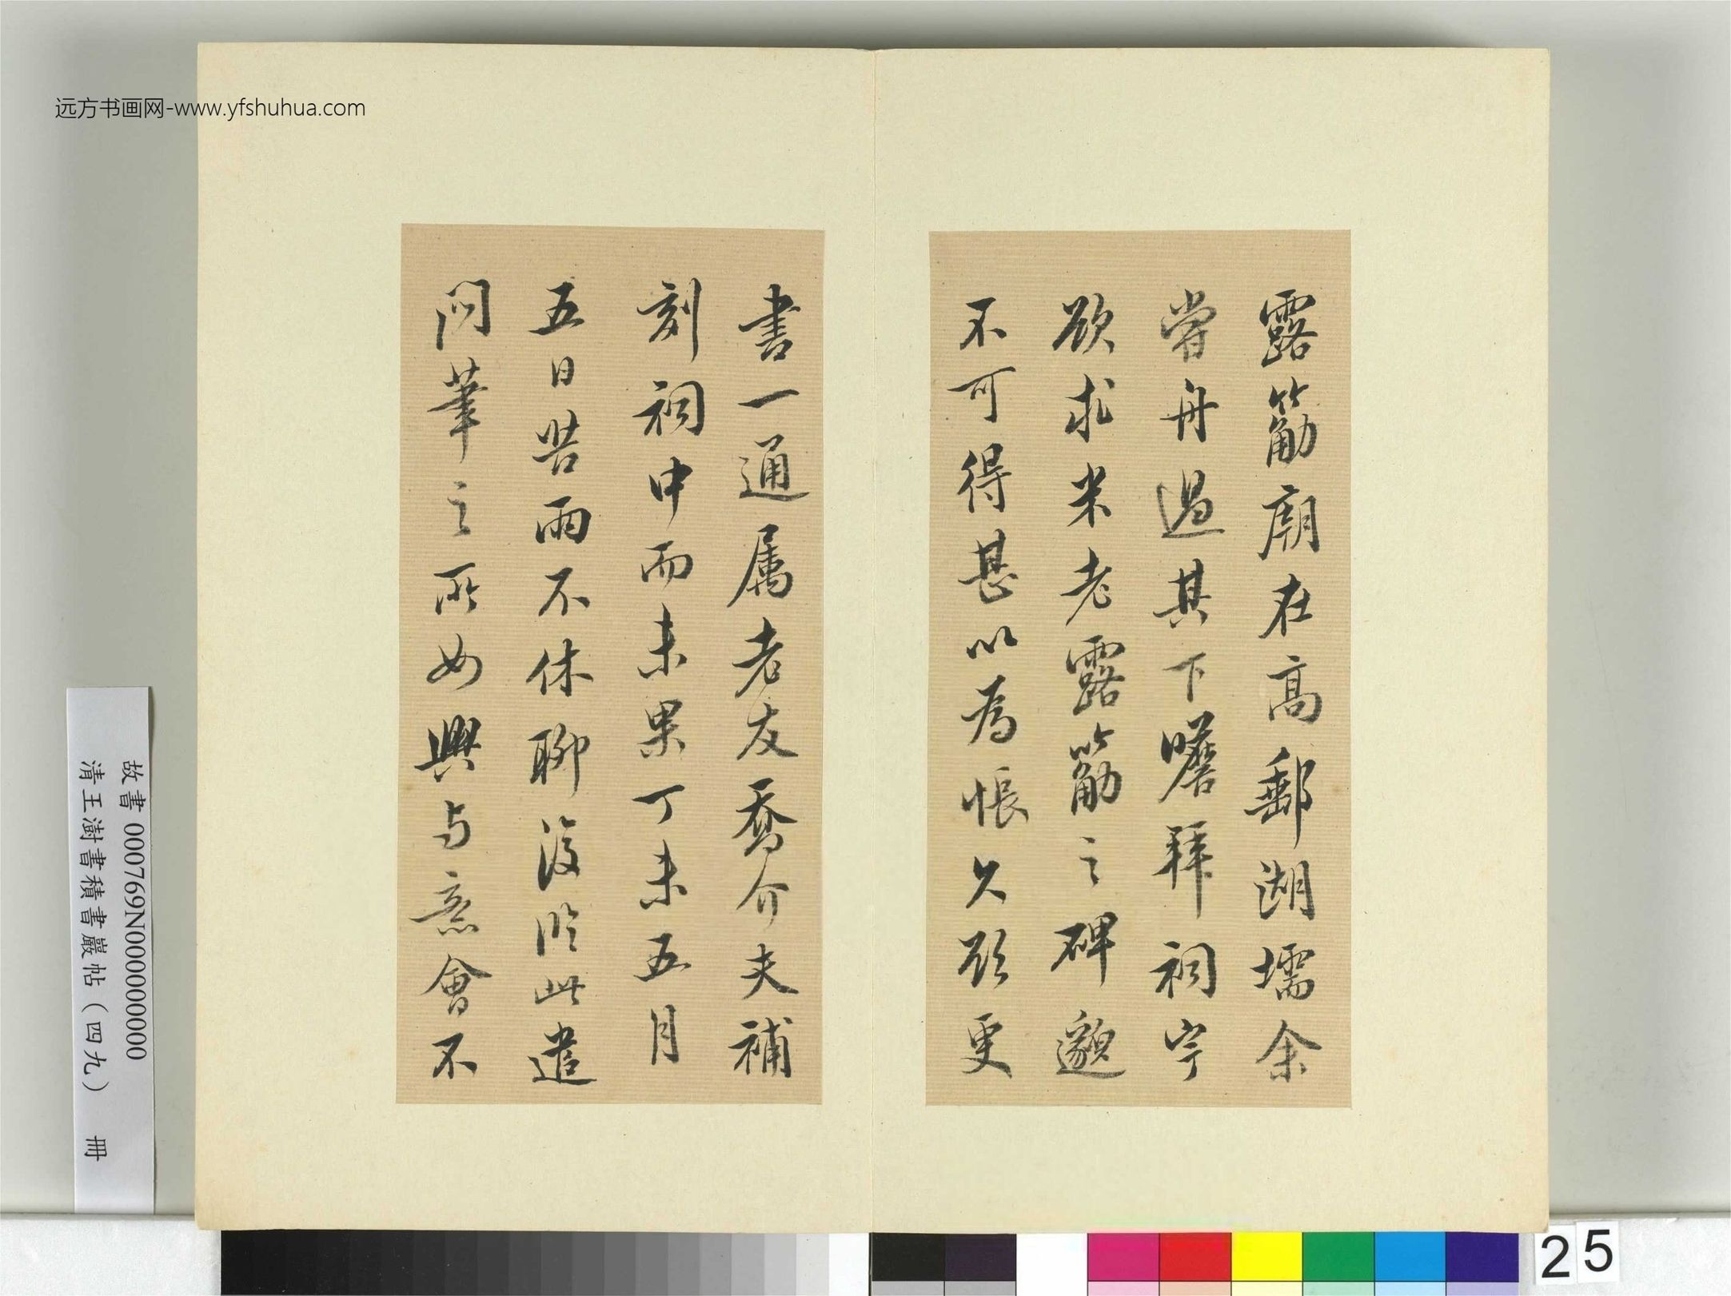 远方书画网-www.yfshuhua.com
露筋廟在高郵湖壖余
嘗舟過其下瞻拜祠宇
欲求米老露筋之碑邈
不可得甚以為悵久欲更
書一通屬老友喬介夫補
刻祠中而未果丁未五月
五日苦雨不休聊復臨此遣
悶筆之所如興与意會不
故書 000769N000000000
清王澍書積書巖帖（四九） 冊
25